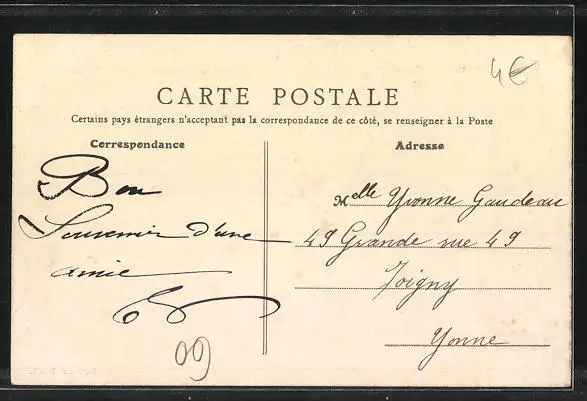 4€
CARTE POSTALE
Certains pays étrangers n'acceptant pas la correspondance de ce côté, se renseigner à la Poste
Correspondance
Bon
Souvenir d'une
amie
99
Adresse
Melle Yvonne Gaudeau
49 Grande rue 49
Joigny
Yonne